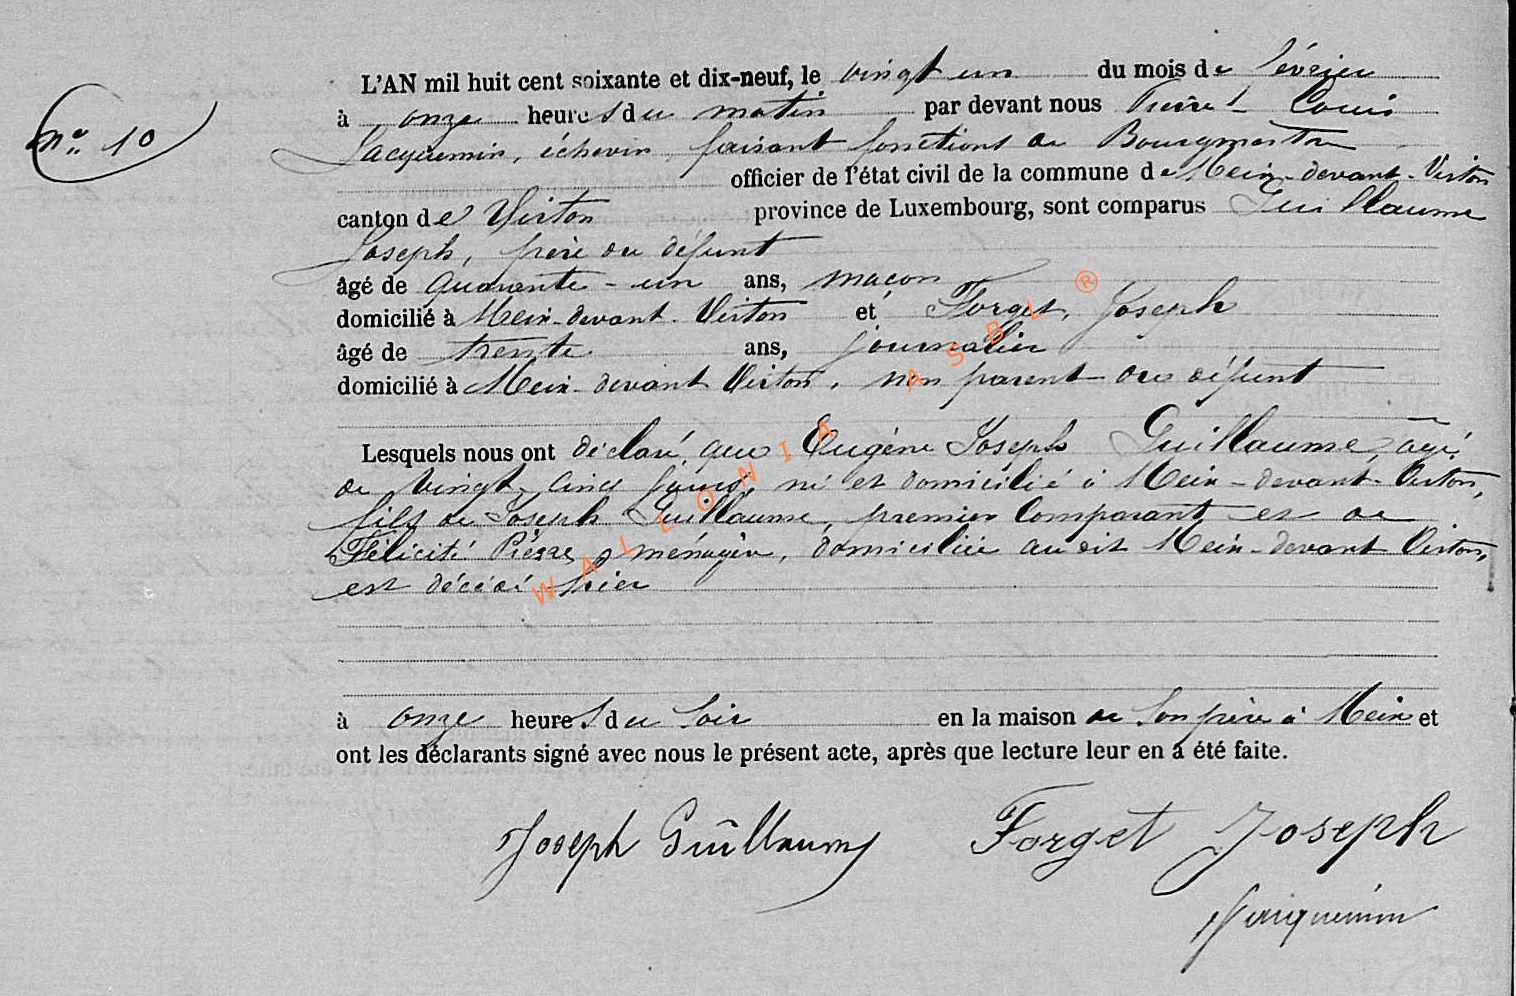 L'AN mil huit cent soixante et dix-neuf, le vingt un du mois de février
N° 10
à onze heures du matin par devant nous Pierre Louis
Jacquemin, échevin, faisant fonctions de Bourgmestre
officier de l'état civil de la commune de Meix-devant-Virton
canton de Virton province de Luxembourg, sont comparus Guillaume
Joseph, père du défunt
âgé de quarante-un ans, maçon
domicilié à Meix-devant-Virton et Forget, Joseph
âgé de trente ans, journalier
domicilié à Meix-devant Virton, non parent du défunt
Lesquels nous ont déclaré que Eugène Joseph Guillaume, âgé
de vingt-cinq jours, né et domicilié à Meix-devant-Virton,
fils de Joseph Guillaume, premier comparant et de
Félicité Pierre, ménagère, domiciliée au dit Meix-devant Virton,
est décédé hier
à onze heures du soir en la maison de son père à Meix et
ont les déclarants signé avec nous le présent acte, après que lecture leur en a été faite.
Joseph Guillaume Forget Joseph
Jacquemin
WALLONIA ASBL ®